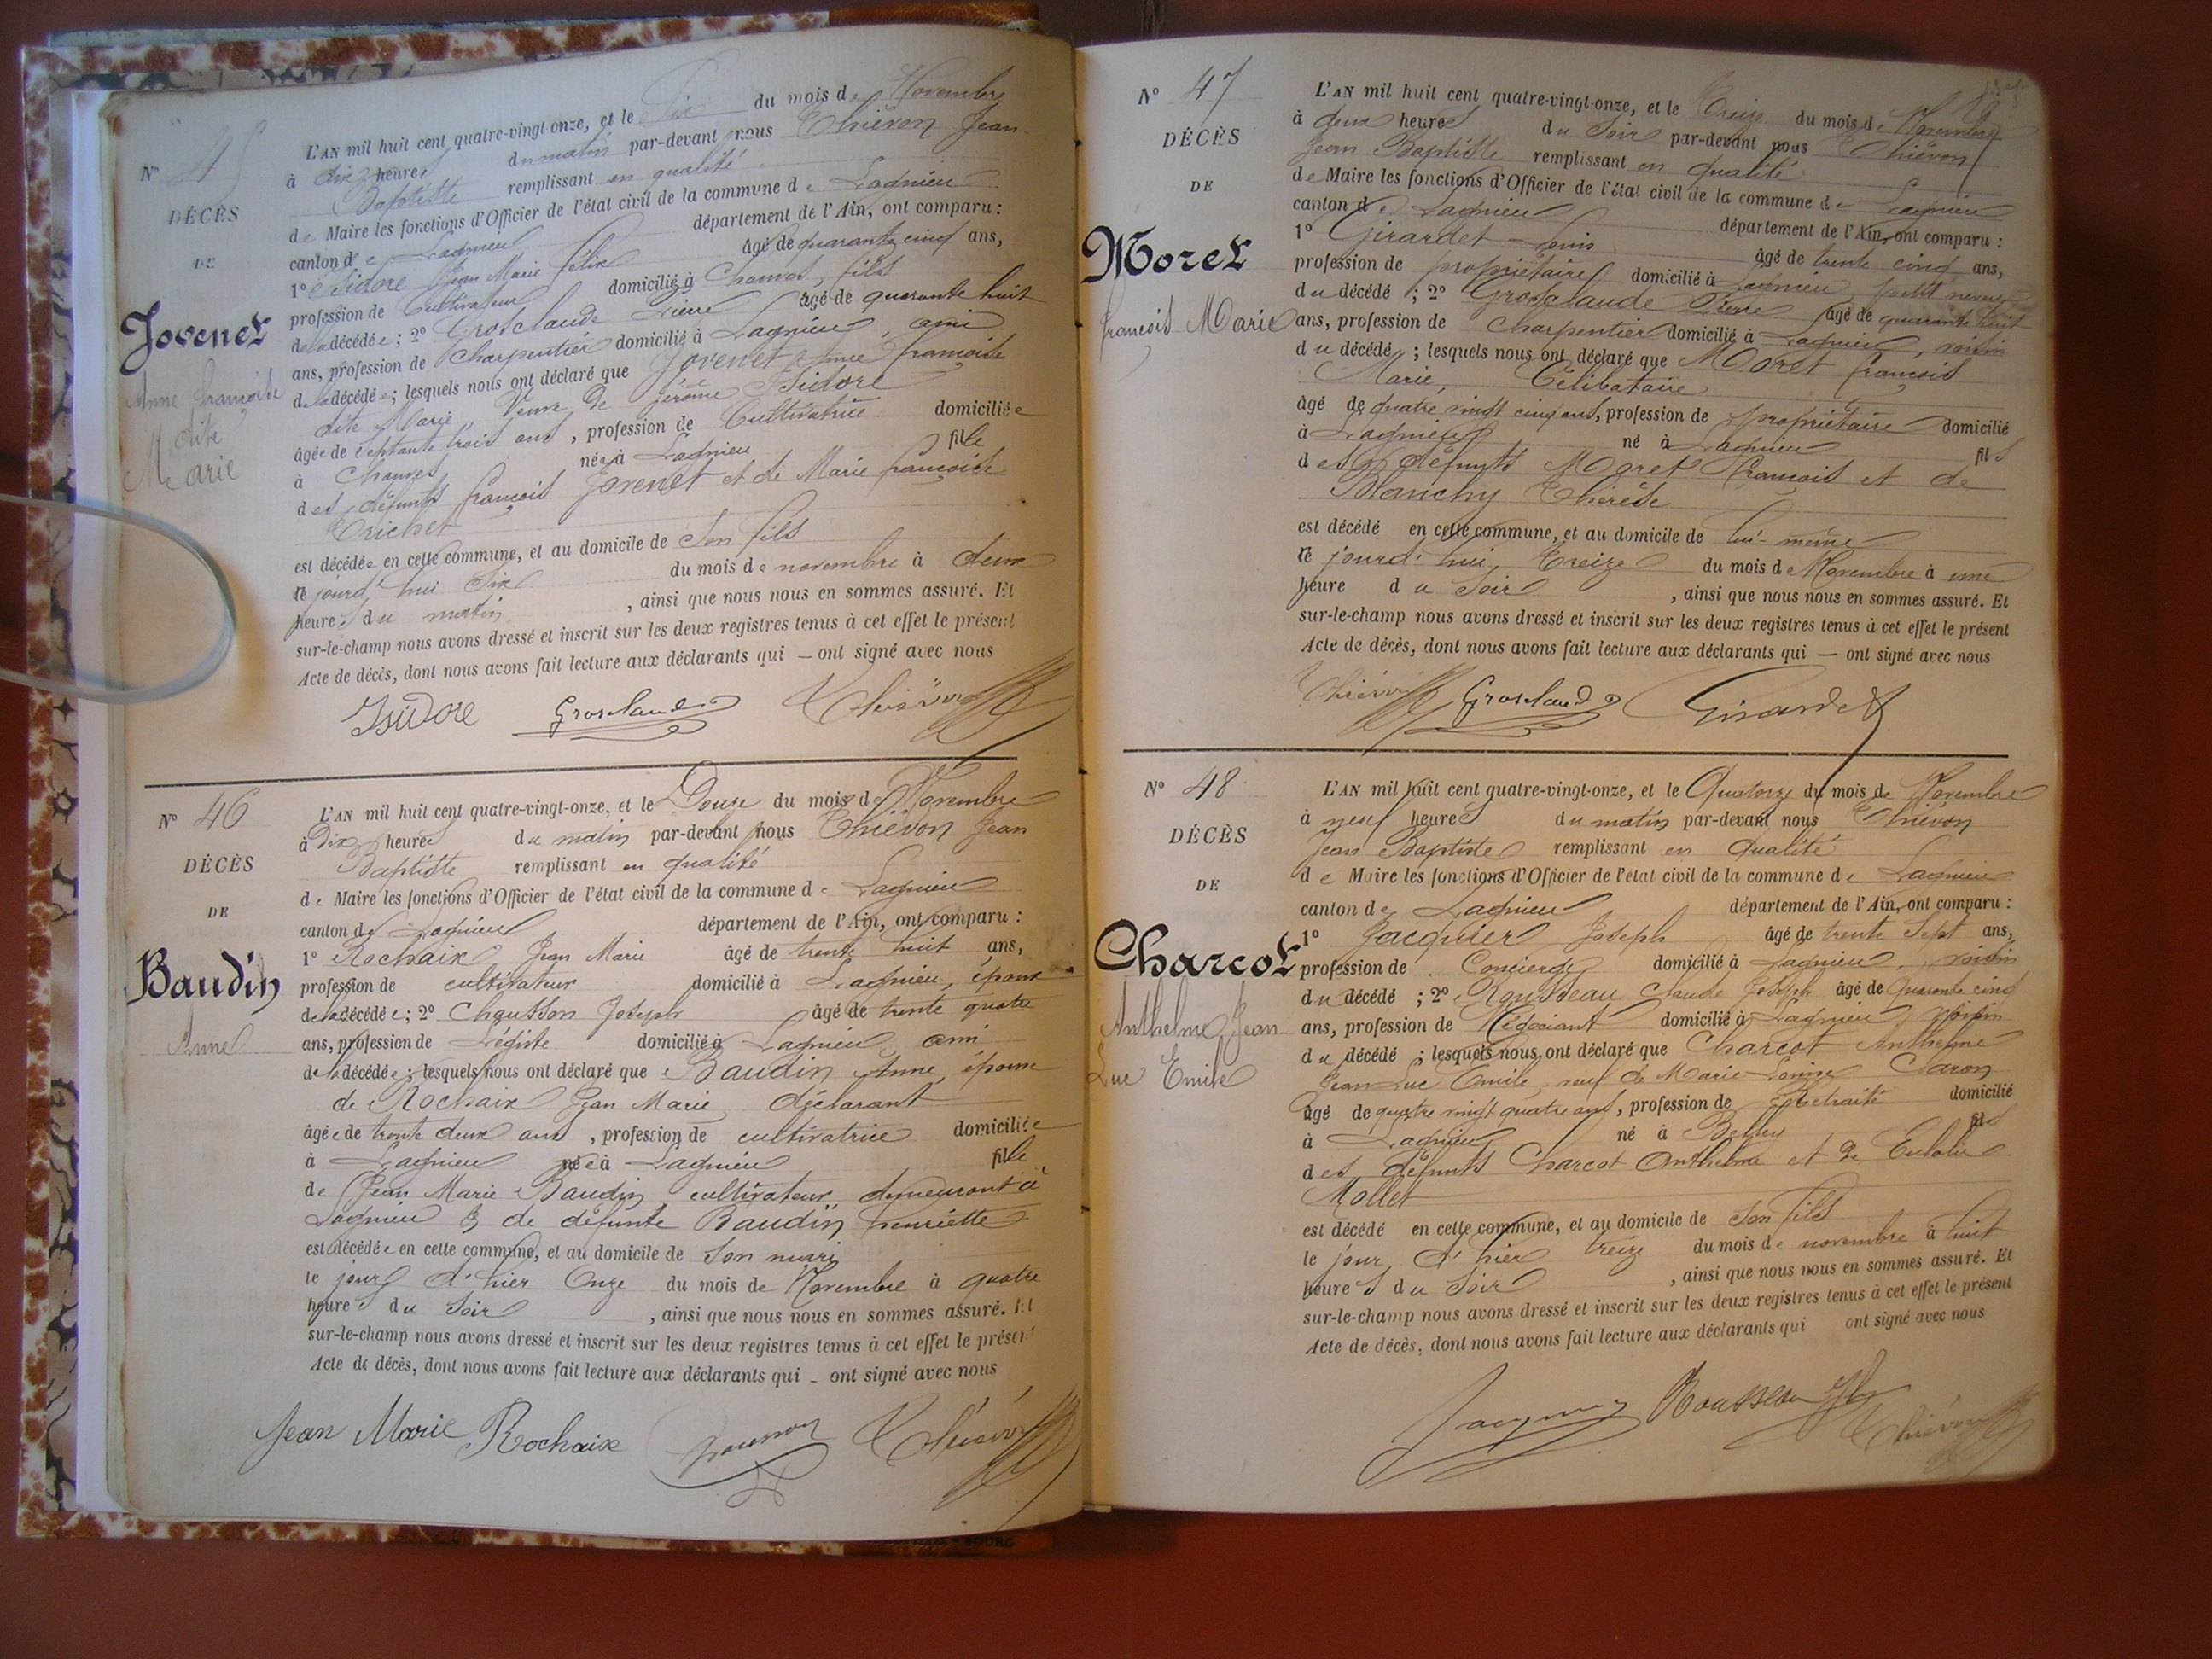 Nº 45
DÉCÈS
DE
Jovenet
Anne françoise
dite
Marie
L'AN mil huit cent quatre-vingt-onze, et le Six du mois de Novembre
à dix heures du matin par-devant nous Thiévon Jean
Baptiste remplissant en qualité
de Maire les fonctions d'Officier de l'état civil de la commune de Lagnieu
canton de Lagnieu département de l'Ain, ont comparu :
1º Isidore Jean Marie félix âgé de quarante cinq ans,
profession de Cultivateur domicilié à Charves, fils
de la décédée ; 2º Grosclaude Pierre âgé de quarante huit
ans, profession de Charpentier domicilié à Lagnieu, ami
de la décédée ; lesquels nous ont déclaré que Jovenet Anne françoise
dite Marie Veuve de jérôme Isidore
âgée de Septante trois ans, profession de Cultivatrice domiciliée
à Charves née à Lagnieu fille
des défunts françois Jovenet et de Marie françoise
Trichet
est décédée en cette commune, et au domicile de Son fils
ce jourd'hui Six du mois de novembre à deux
heures du matin, ainsi que nous nous en sommes assuré. Et
sur-le-champ nous avons dressé et inscrit sur les deux registres tenus à cet effet le présent
Acte de décès, dont nous avons fait lecture aux déclarants qui — ont signé avec nous
Isidore Grosclaude Thiévon
Nº 46
DÉCÈS
DE
Baudin
Anne
L'AN mil huit cent quatre-vingt-onze, et le Douze du mois de Novembre
à Dix heures du matin par-devant nous Thiévon Jean
Baptiste remplissant en qualité
de Maire les fonctions d'Officier de l'état civil de la commune de Lagnieu
canton de Lagnieu département de l'Ain, ont comparu :
1º Rochaix Jean Marie âgé de trente huit ans,
profession de cultivateur domicilié à Lagnieu, époux
de la décédée ; 2º Chausson Joseph âgé de trente quatre
ans, profession de Légiste domicilié à Lagnieu ami
de la décédée ; lesquels nous ont déclaré que Baudin Anne, épouse
de Rochaix Jean Marie, déclarant
âgée de trente deux ans, profession de cultivatrice domiciliée
à Lagnieu née à Lagnieu fille
de Jean Marie Baudin cultivateur demeurant à
Lagnieu & de défunte Baudin henriette
est décédée en cette commune, et au domicile de Son mari
le jour d'hier Onze du mois de Novembre à quatre
heures du Soir, ainsi que nous nous en sommes assuré. Et
sur-le-champ nous avons dressé et inscrit sur les deux registres tenus à cet effet le présent
Acte de décès, dont nous avons fait lecture aux déclarants qui — ont signé avec nous
Jean Marie Rochaix Chausson Thiévon
Nº 47
DÉCÈS
DE
Moret
françois Marie
L'AN mil huit cent quatre-vingt-onze, et le Treize du mois de Novembre
à deux heures du Soir par-devant nous Thiévon
Jean Baptiste remplissant en qualité
de Maire les fonctions d'Officier de l'état civil de la commune de Lagnieu
canton de Lagnieu département de l'Ain, ont comparu :
1º Girardet Louis âgé de trente cinq ans,
profession de propriétaire domicilié à Lagnieu, petit neveu
du décédé ; 2º Grosclaude Pierre âgé de quarante huit
ans, profession de Charpentier domicilié à Lagnieu, voisin
du décédé ; lesquels nous ont déclaré que Moret françois
Marie, Célibataire
âgé de quatre vingt cinq ans, profession de propriétaire domicilié
à Lagnieu né à Lagnieu fils
des défunts Moret François et de
Blanchy Thérèse
est décédé en cette commune, et au domicile de lui-même
ce jourd'hui, Treize du mois de Novembre à une
heure du Soir, ainsi que nous nous en sommes assuré. Et
sur-le-champ nous avons dressé et inscrit sur les deux registres tenus à cet effet le présent
Acte de décès, dont nous avons fait lecture aux déclarants qui — ont signé avec nous
Thiévon Grosclaude Girardet
Nº 48
DÉCÈS
DE
Charcot
Anthelme Jean
Luc Emile
L'AN mil huit cent quatre-vingt-onze, et le Quatorze du mois de Novembre
à neuf heures du matin par-devant nous Thiévon
Jean Baptiste remplissant en Qualité
de Maire les fonctions d'Officier de l'état civil de la commune de Lagnieu
canton de Lagnieu département de l'Ain, ont comparu :
1º Jacquier Joseph âgé de trente Sept ans,
profession de Concierge domicilié à Lagnieu, voisin
du décédé ; 2º Rousseau Claude Joseph âgé de Quarante cinq
ans, profession de Négociant domicilié à Lagnieu voisin
du décédé ; lesquels nous ont déclaré que Charcot Anthelme
Jean Luc Emile, veuf de Marie Louise Caron
âgé de quatre vingt quatre ans, profession de Retraité domicilié
à Lagnieu né à Belley fils
des défunts Charcot Anthelme et de Eulalie
Mollet
est décédé en cette commune, et au domicile de Son fils
le jour d'hier treize du mois de novembre à huit
heures du Soir, ainsi que nous nous en sommes assuré. Et
sur-le-champ nous avons dressé et inscrit sur les deux registres tenus à cet effet le présent
Acte de décès, dont nous avons fait lecture aux déclarants qui ont signé avec nous
Jacquier Rousseau Thiévon